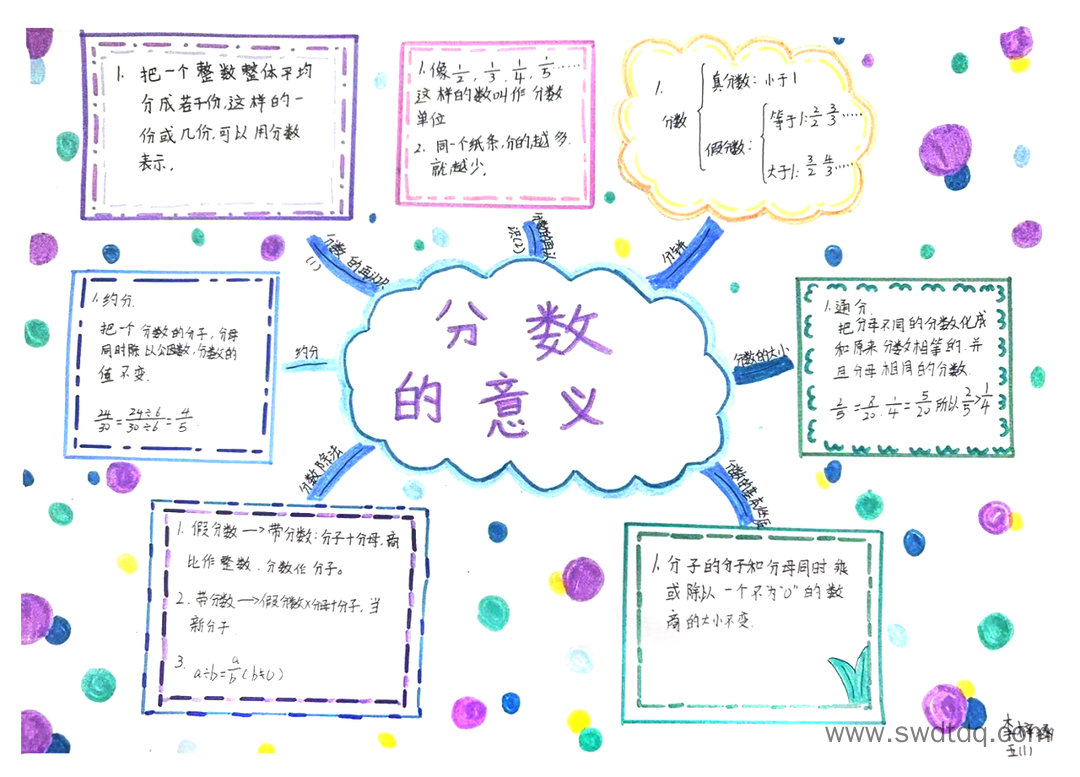 1. 把一个整数整体平均
分成若干份,这样的一
份或几份,可以用分数
表示。
1. 像1/2, 1/3, 1/4, 1/5……
这样的数叫作分数
单位
2. 同一个纸条,分的越多,
就越少。
1.
分数
真分数: 小于1
假分数:
等于1: 2/2 3/3……
大于1: 3/2 4/3……
分数的再认识
(1)
分数的再认
识(2)
分数的大小
约分
分数除法
分数
的意义
1. 约分
把个分数的分子,分母
同时除以公因数,分数的
值不变.
24/30=24÷6/30÷6=4/5.
1. 通分.
把分母不同的分数化成
和原来分数相等的.并
且分母相同的分数.
2/5=8/20. 1/4=5/20 所以2/5>1/4
1. 假分数—>带分数:分子÷分母,商
比作整数.分数作分子。
2. 带分数—>假分数×分母+分子,当
新分子.
3. a÷b=a/b(b≠0)
1. 分子的分子和分母同时乘
或除以一个不为"0"的数
商的大小不变.
五(1)
www.swdtdq.com